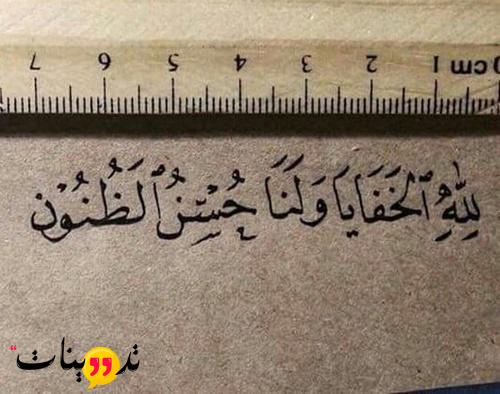 0 cm 1 2 3 4 5 6 7
لِلّٰهِ ٱلخَفَايَا وَلَنَا حُسْنُ ٱلظُنُوْن
تدوينات